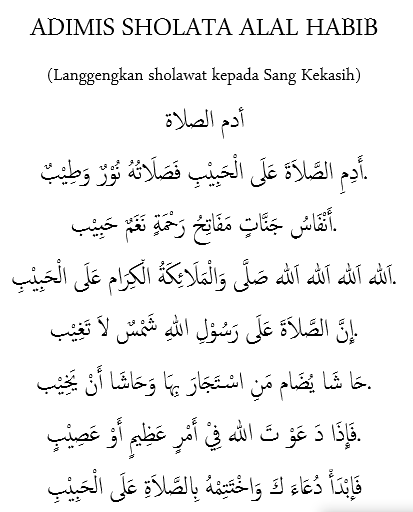 ADIMIS SHOLATA ALAL HABIB
(Langgengkan sholawat kepada Sang Kekasih)
أدم الصلاة
أَدِمِ الصَّلاَةَ عَلَى الْحَبِيْبِ فَصَلَاتُهُ نُوْرٌ وَطِيْبٌ.
أَنْفَاسُ جَنَّاتٍ مَفَاتِحُ رَحْمَةٍ نَغَمٌ حَبِيْب.
اَلله اَلله اَلله اَلله صَلَّى وَالْمَلَائِكَةُ الْكِرَام عَلَى الْحَبِيْبِ.
إِنَّ الصَّلاَةَ عَلَى رَسُوْلِ اللهِ شَمْسٌ لاَ تَغِيْب.
حَا شَا يُضَام مَنِ اسْتَجَارَ بِهَا وَحَاشَا أَنْ يَخِيْب.
فَإِذَا دَ عَوْ تَ الله فِيْ أَمْرٍ عَظِيمٍ أَوْ عَصِيْبٍ.
فَإبْدَأْ دُعَاءَ كَ وَاخْتَتِمْهُ بِالصَّلاَةِ عَلَى الْحَبِيْبِ